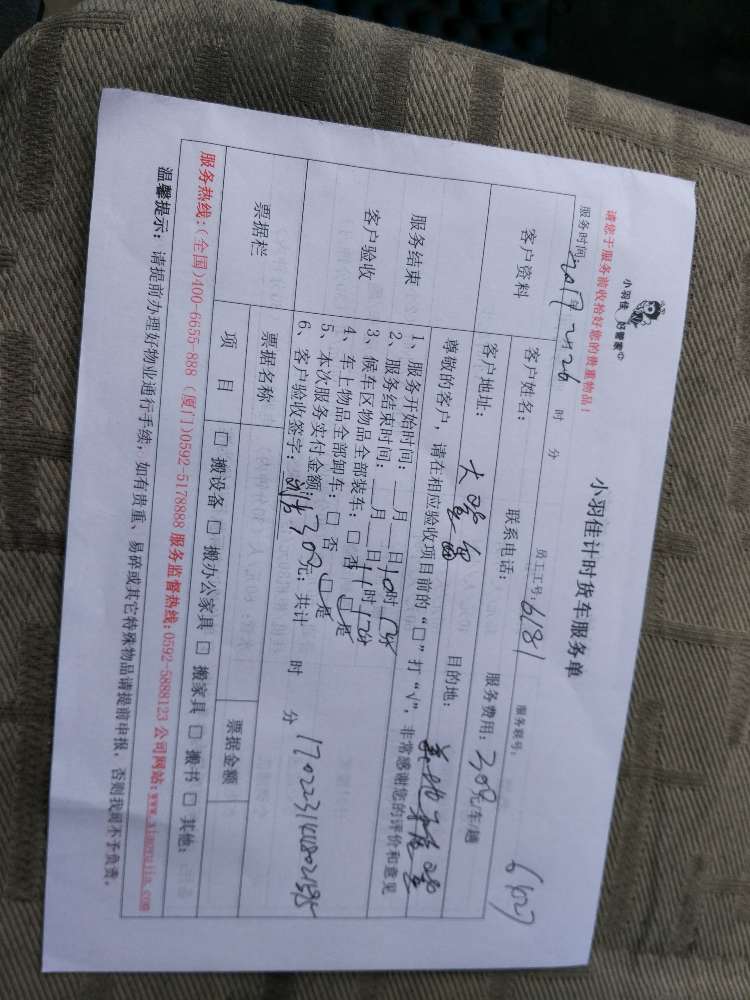 小羽佳 好管家
小羽佳计时货车服务单
请您于服务前收拾好您的贵重物品!
员工工号: 6181
服务联号:
61027
服务时间: 2019年2月26 时 分
客户资料
客户姓名:
联系电话:
服务费用: 308元/车/趟
客户地址:
目的地:
服务结束
客户验收
尊敬的客户,请在相应验收项目前的“□”打“√”,非常感谢您的评价和意见
1、服务开始时间: 月 日10时
2、服务结束时间: 月 日11时
3、候车区物品全部装车: □ 否 □ 是
4、车上物品全部卸车: □ 否 □ 是
5、本次服务实付金额: 308元; 共计 时 分
6、客户验收签字:
票据栏
票据名称
票据金额
项 目
□ 搬设备 □ 搬办公家具 □ 搬家具 □ 搬书 □ 其他:
服务热线:(全国)400-6655-888 (厦门)0592-5178888 服务监督热线:0592-5888123 公司网站:www.xiaoyujia.com
温馨提示: 请提前办理好物业通行手续,如有贵重、易碎或其它特殊物品请提前申报,否则我司不予负责。